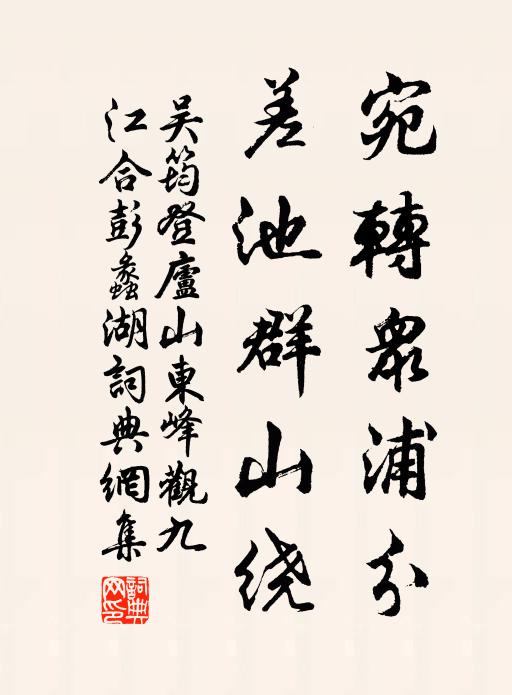 宛轉衆浦分
差池群山绕
吴筠登廬山東峰觀九
江合彭蠡湖詞典網集
詞典
网印